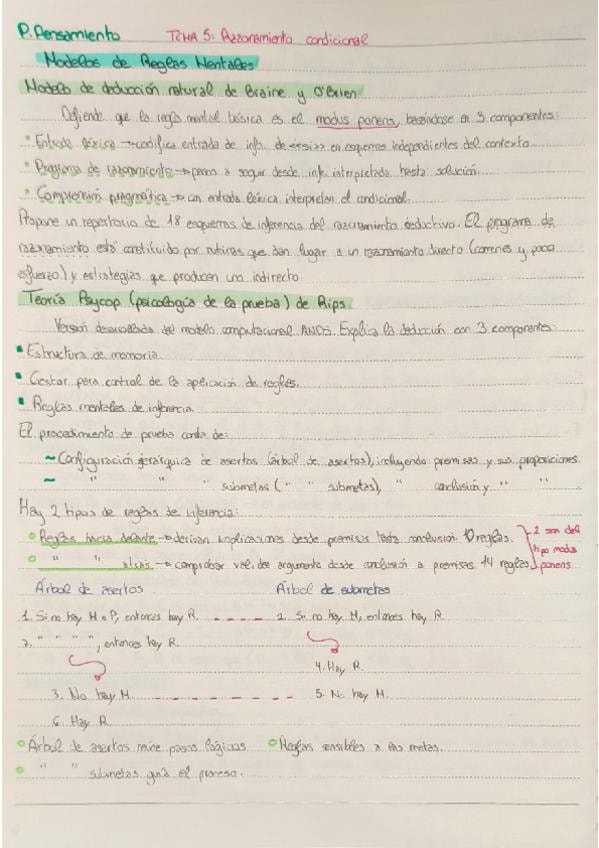 P. Pensamiento TEMA 5: Razonamiento condicional
Modelos de Reglas Mentales
Modelo de deducción natural de Braine y O'Brien
Defiende que la regla mental básica es el modus ponens, basándose en 3 componentes:
• Entrada léxica → codifica entrada de inf. de en esquemas independientes del contexto.
• Programa de razonamiento → pasos a seguir desde inf. interpretada hasta solución.
• Comprensión pragmática → con entrada léxica interpretan el condicional.
Propone un repertorio de 18 esquemas de inferencia del razonamiento deductivo. El programa de
razonamiento está constituido por rutinas que dan lugar a un razonamiento directo (comunes y poco
esfuerzo) y estrategias que producen uno indirecto.
Teoría Psycop (psicología de la prueba) de Rips
Versión desarrollada del modelo computacional ANDS. Explica la deducción con 3 componentes:
• Estructura de memoria.
• Gestor para control de la aplicación de reglas.
• Reglas mentales de inferencia
El procedimiento de prueba consta de:
~ Configuración jerárquica de asertos (árbol de asertos), incluyendo premisas y sus proposiciones.
~ " " " submetas ( " " submetas), " conclusión y " "
Hay 2 tipos de reglas de inferencia:
• Reglas hacia delante → derivan implicaciones desde premisas hasta conclusión. 10 reglas.
• " " atrás → comprobar val. de argumento desde conclusión a premisas. 14 reglas.
2 son del
tipo modus
ponens
Árbol de asertos Árbol de submetas
1. Si no hay M o P, entonces hay R. - - - - 2. Si no hay M, entonces hay R
2. " " " ", entonces hay R.
4. Hay R.
3. No hay M. - - - - - - - - 5. No hay M.
6. Hay R.
• Árbol de asertos reúne pasos lógicos • Reglas sensibles a las metas.
• " " submetas guía el proceso.